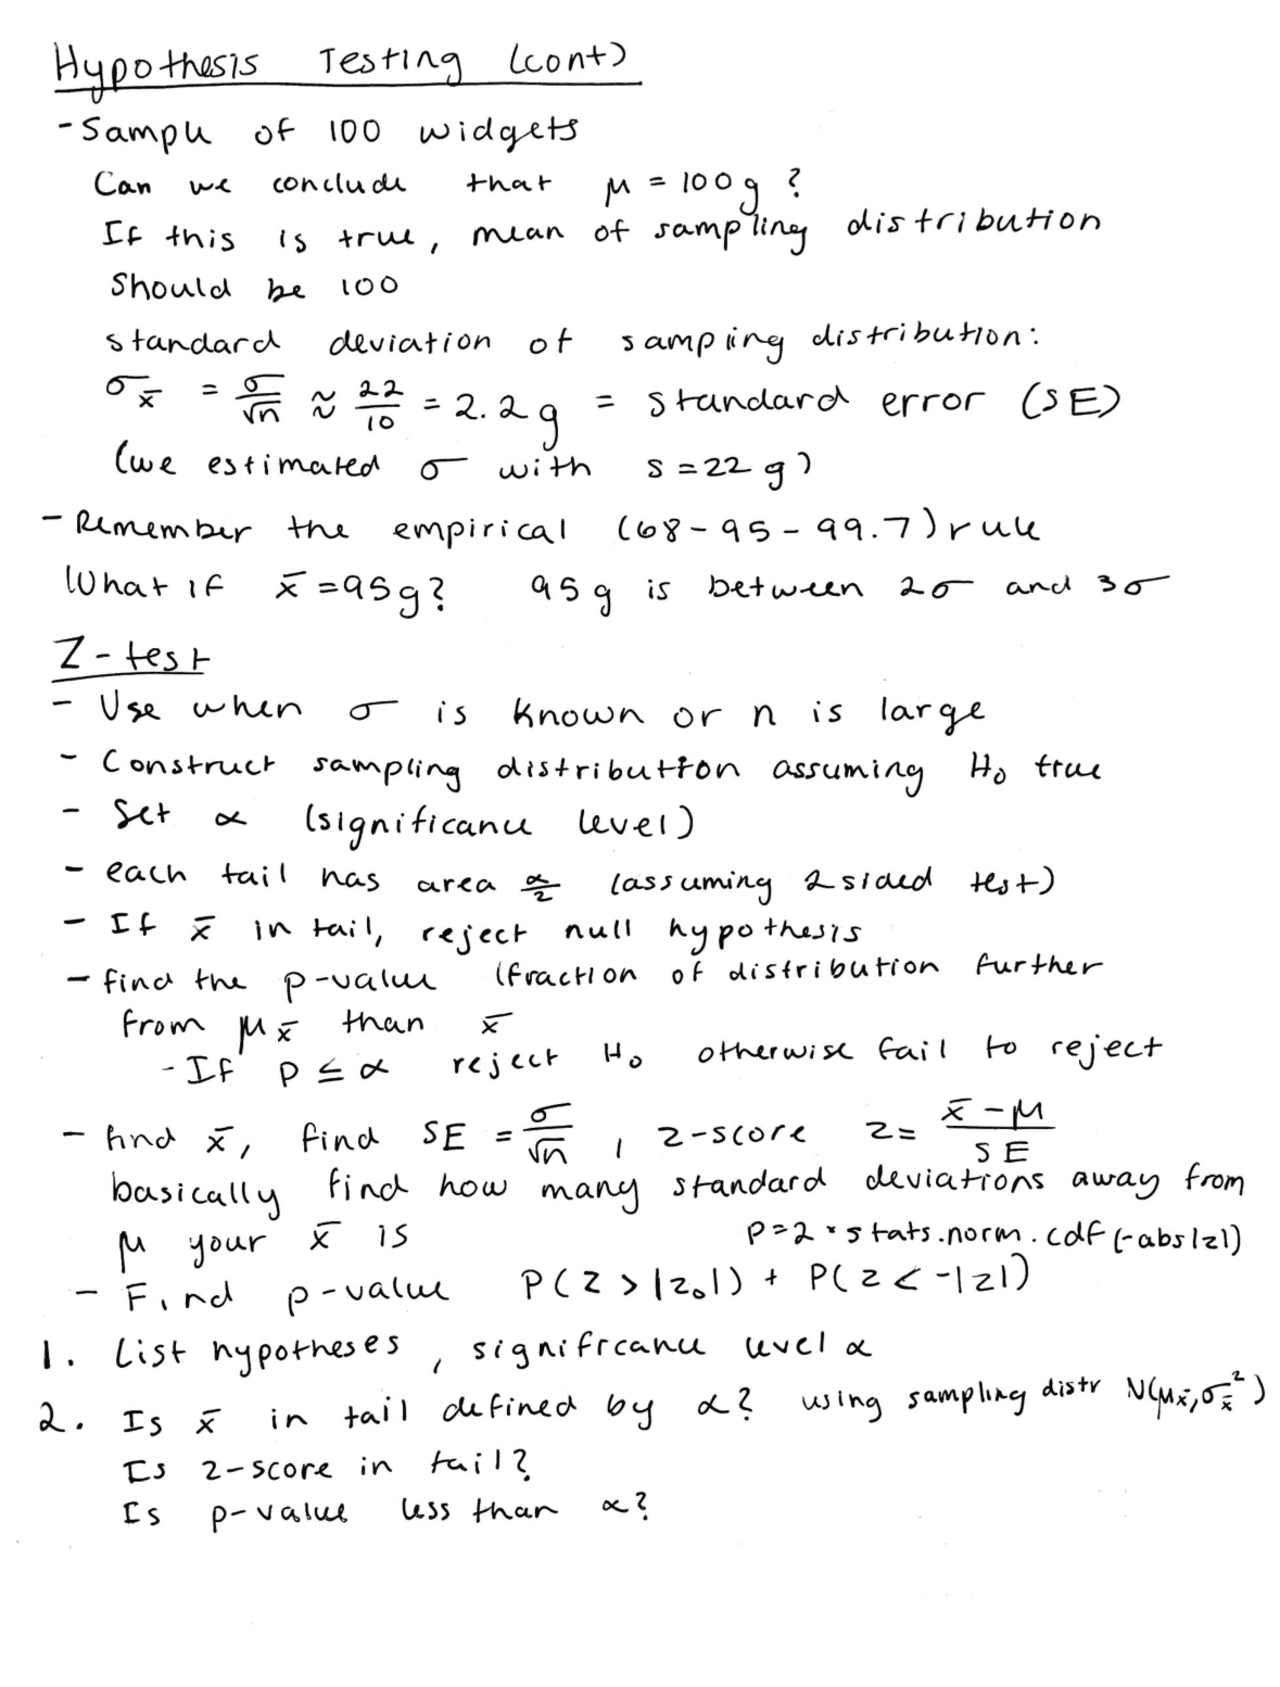 Hypothesis Testing (cont)
- Sample of 100 widgets
Can we conclude that μ = 100g ?
If this is true, mean of sampling distribution
should be 100
standard deviation of sampling distribution:
σx̄ = σ/√n ≈ 22/10 = 2.2g = standard error (SE)
(we estimated σ with s = 22 g)
- Remember the empirical (68-95-99.7) rule
What if x̄ = 95g? 95g is between 2σ and 3σ
Z-test
- Use when σ is known or n is large
- Construct sampling distribution assuming H₀ true
- Set α (significance level)
- each tail has area α/2 (assuming 2 sided test)
- If x̄ in tail, reject null hypothesis
- find the p-value (fraction of distribution further
from μx̄ than x̄
- If p ≤ α reject H₀ otherwise fail to reject
- find x̄, find SE = σ/√n , z-score z = (x̄ - μ)/SE
basically find how many standard deviations away from
μ your x̄ is p=2*stats.norm.cdf(-abs|z|)
- Find p-value P(Z > |z₀|) + P(Z < -|z|)
1. List hypotheses, significance level α
2. Is x̄ in tail defined by α? using sampling distr N(μx̄, σx̄²)
Is z-score in tail?
Is p-value less than α?